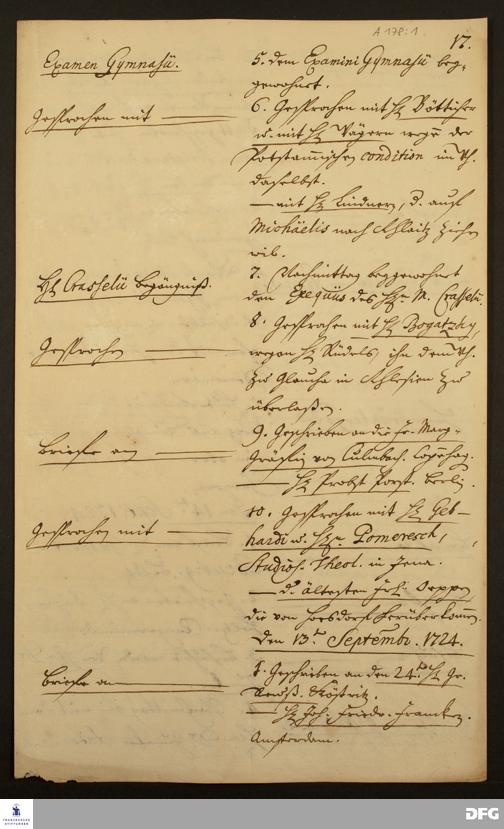 A 178:1
17.
Examen Gymnasii.
5. dem Examini Gymnasii bey-
gewohnet.
Gesprochen mit
6. Gesprochen mit H. Bötticher
u. mit H. Jägern wegen der
Potstammischen condition im
daselbst.
— mit H. Lindnern, d. auf
Michäelis nach ziehen
wil.
H. Crasselii begängniß.
7. Nachmittag beygewohnet
den Exequiis des H. M. Crasselii.
Gesprochen
8. Gesprochen mit H. Bogatzky,
wegen H. Rudels, ihn dem
zu Glaucha in Schlesien zu
überlaßen.
Briefe an
9. Geschrieben an die Fr. Marg-
gräffin von Culmbach. Copenhag.
— H. Probst Porst. Berlin.
Gesprochen mit
10. Gesprochen mit H. Geb-
hardi u. H. Pomeresch,
Studios. Theol. in Jena.
— d. ältesten Frl.
die von herüber kommen.
Den 13. Septembr. 1724.
Briefe an
1. Geschrieben an den 24. H. Gr.
Reuß. Köstritz.
— H. Joh. Friedr. Francken.
Amsterdam.
FRANCKESCHE
STIFTUNGEN
DFG